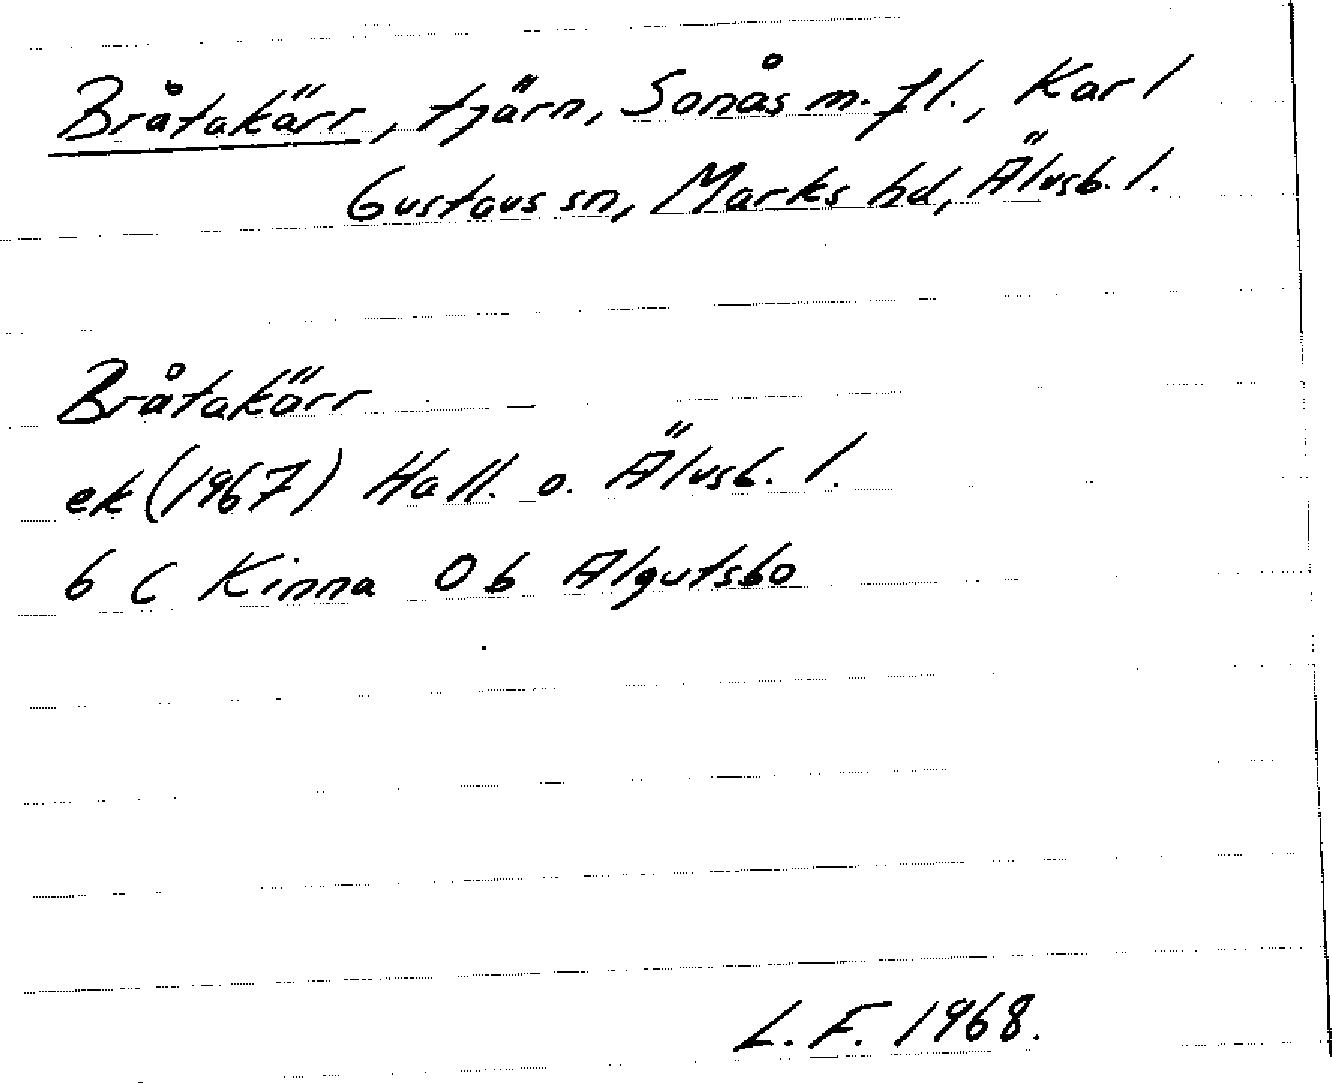 Bråtakärr, tjärn, Sonås m. fl., Karl
Gustavs sn, Marks hd, Älvsb. l.
Bråtakärr
ek (1967) Hall. o. Älvsb. l.
6 C Kinna 0 b Algutsbo
L. F. 1968.